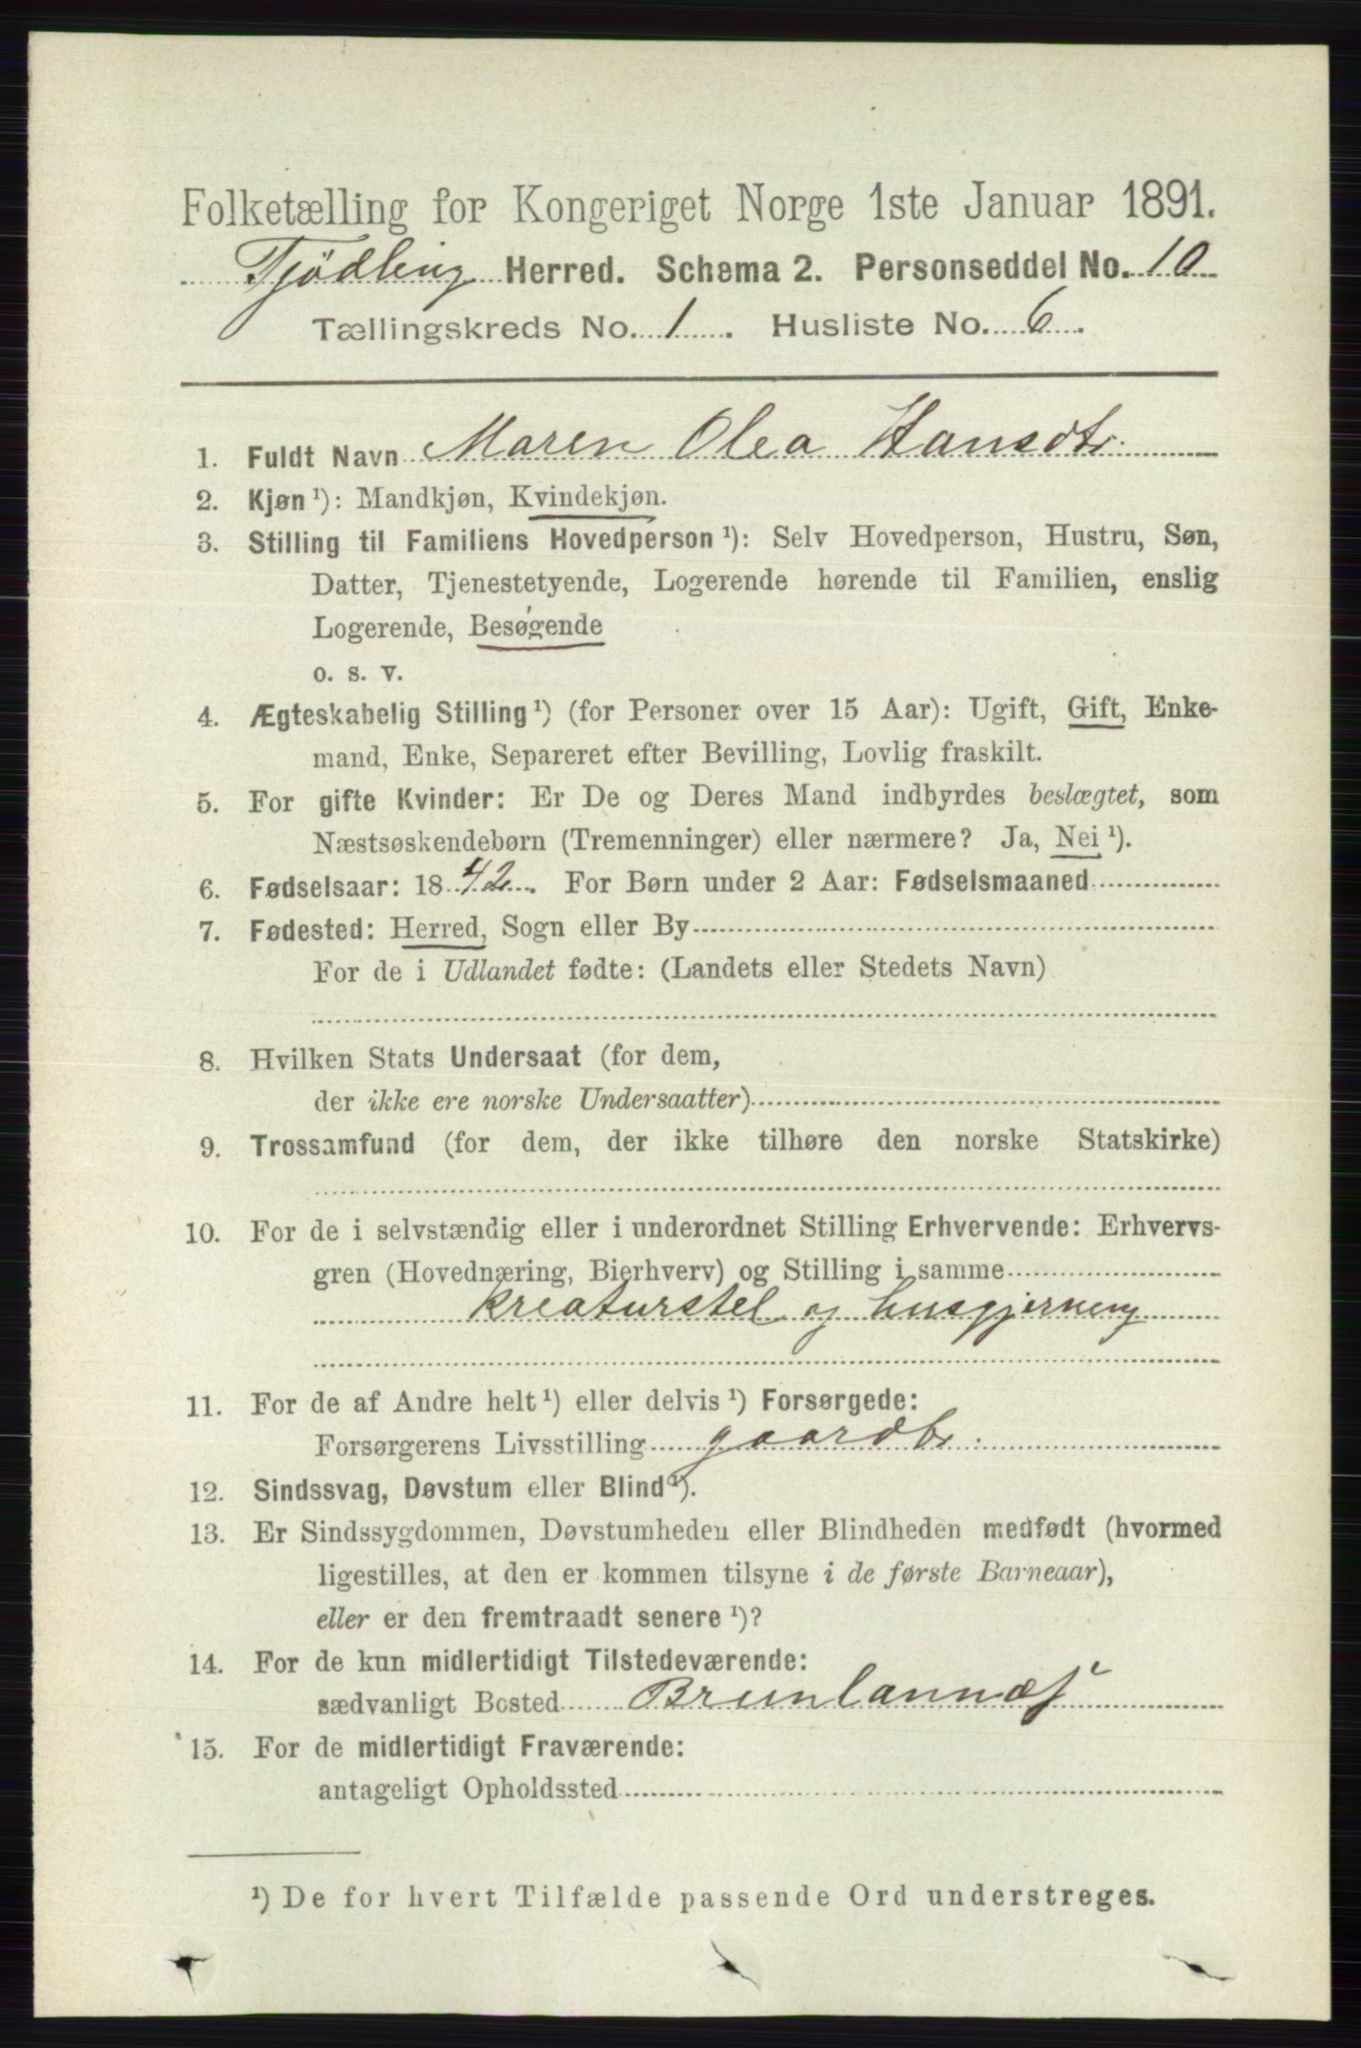 Folketælling for Kongeriget Norge 1ste Januar 1891.
Tjødling Herred. Schema 2. Personseddel No. 10
Tællingskreds No. 1. Husliste No. 6.
1. Fuldt Navn Maren Olea Hansdtr.
2. Kjøn ¹): Mandkjøn, Kvindekjøn.
3. Stilling til Familiens Hovedperson ¹): Selv Hovedperson, Hustru, Søn,
Datter, Tjenestetyende, Logerende hørende til Familien, enslig
Logerende, Besøgende
o. s. v.
4. Ægteskabelig Stilling ¹) (for Personer over 15 Aar): Ugift, Gift, Enke-
mand, Enke, Separeret efter Bevilling, Lovlig fraskilt.
5. For gifte Kvinder: Er De og Deres Mand indbyrdes beslægtet, som
Næstsøskendebørn (Tremenninger) eller nærmere? Ja, Nei ¹).
6. Fødselsaar: 1842. For Børn under 2 Aar: Fødselsmaaned
7. Fødested: Herred, Sogn eller By
For de i Udlandet fødte: (Landets eller Stedets Navn)
8. Hvilken Stats Undersaat (for dem,
der ikke ere norske Undersaatter)
9. Trossamfund (for dem, der ikke tilhøre den norske Statskirke)
10. For de i selvstændig eller i underordnet Stilling Erhvervende: Erhvervs-
gren (Hovednæring, Bierhverv) og Stilling i samme
kreaturstel og husgjerning
11. For de af Andre helt ¹) eller delvis ¹) Forsørgede:
Forsørgerens Livsstilling gaardbr.
12. Sindssvag, Døvstum eller Blind ¹).
13. Er Sindssygdommen, Døvstumheden eller Blindheden medfødt (hvormed
ligestilles, at den er kommen tilsyne i de første Barneaar),
eller er den fremtraadt senere ¹)?
14. For de kun midlertidigt Tilstedeværende:
sædvanligt Bosted Brunlannæs
15. For de midlertidigt Fraværende:
antageligt Opholdssted
¹) De for hvert Tilfælde passende Ord understreges.